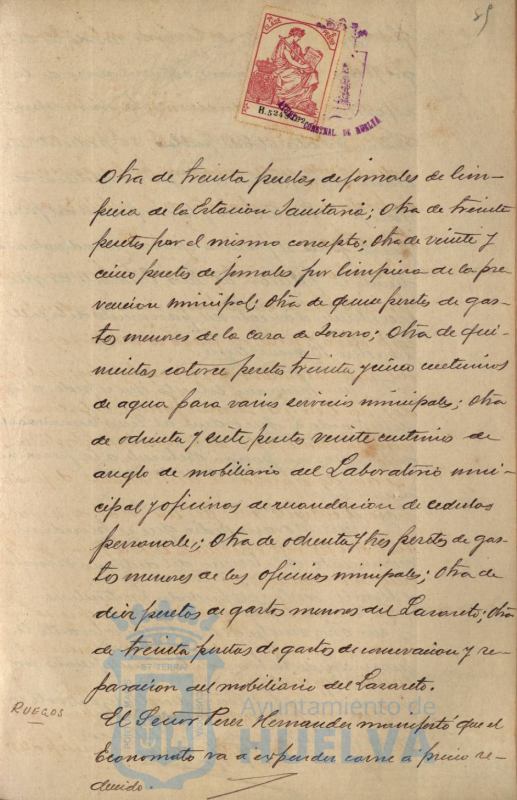 89
CLASE 8ª
1 PESO
B.524
CONSTNAL. DE HUELVA
Otra de treinta pesetas de jornales de lim-
pieza de la Estacion Sanitaria; Otra de treinta
pesetas por el mismo concepto; Otra de veinte y
cinco pesetas de jornales por limpieza de la pre-
vencion municipal; Otra de quince pesetas de gas-
tos menores de la casa de Socorro; Otra de qui-
nientas catorce pesetas treinta y cinco centimos
de agua para varios servicios municipales; Otra
de ochenta y siete pesetas veinte centimos de
arreglo de mobiliario del Laboratorio muni-
cipal y oficinas de recaudacion de cedulas
personales; Otra de ochenta y tres pesetas de gas-
tos menores de las oficinas municipales; Otra de
diez pesetas de gastos menores del Lazareto; Otra
de treinta pesetas de gastos de conservacion y re-
paracion del mobiliario del Lazareto.
RUEGOS
El Señor Perez Hernandez manifestó que el
Economato va a expender carne a precio re-
ducido.
Ayuntamiento de
HUELVA